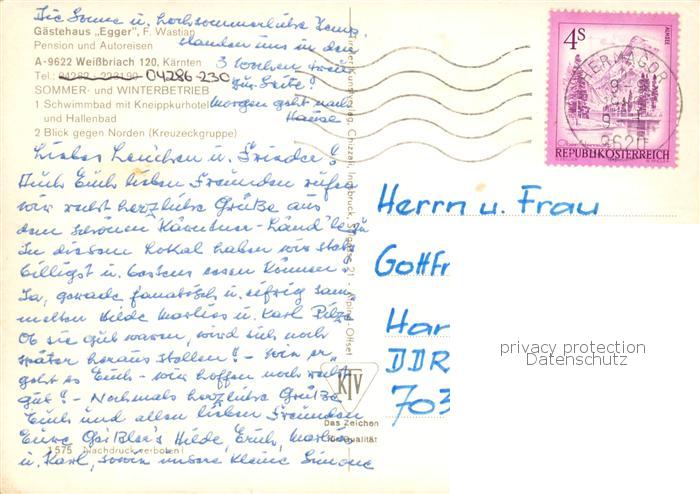 Die Sonne u. hochsommerliche Temp.
standen uns in den
3 Wochen treu
zur Seite!
Morgen geht nach
Hause
Gästehaus „Egger", F. Wastian
Pension und Autoreisen
A-9622 Weißbriach 120, Kärnten
Tel.: 04286-230
SOMMER- und WINTERBETRIEB
1 Schwimmbad mit Kneippkurhotel
und Hallenbad
2 Blick gegen Norden (Kreuzeckgruppe)
Liebes Lenchen u. Friedel!
Auch Euch lieben Freunden rufen
wir recht herzliche Grüße aus
dem schönen Kärntner-Land'le zu
In diesem Lokal haben wir stets
billigst u. bestens essen können!
Ja, gerade fanatisch u. eifrig sam-
melten Hilde Marlies u. Karl Pilze
Ob sie gut waren, wird sich noch
später heraus stellen! - Wie er-
geht es Euch - wir hoffen noch recht
gut! - Nochmals herzliche Grüße
Euch und allen lieben Freunden
Eure Geißler's Hilde, Erich, Marlies
u. Karl, sowie unsere kleine Simone
1575 Nachdruck verboten!
Chizzali, Innsbruck
Alpina-Offset
KTV
Das Zeichen
für Qualität
4S
ALMSEE
REPUBLIK ÖSTERREICH
HERMAGOR
9620
Herrn u. Frau
Gottfr
Har
DDR
703
privacy protection
Datenschutz